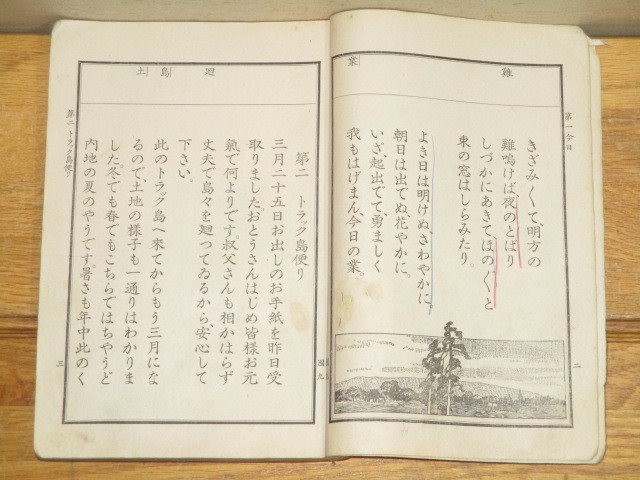 第一 今日
雞
業
きざみくて、明方の
雞鳴けば夜のとばり
しづかにあきてほの〴〵と
東の窓はしらみたり。
よき日は明けぬさわやかに、
朝日は出でぬ花やかに。
いざ、起出でて、勇ましく
我もはげまん、今日の業。
二
廻
島
土
第二 トラック島便り
三月二十五日お出しのお手紙を昨日受
取りました。おとうさんはじめ皆様お元
氣で何よりです。叔父さんも相かはらず
丈夫で島々を廻つてゐるから、安心して
下さい。
此のトラック島へ來てからもう三月にな
るので、土地の様子も一通りはわかりま
した。冬でも春でもこちらではちやうど
内地の夏のやうです。暑さも年中此のく
第二 トラック島便り
三